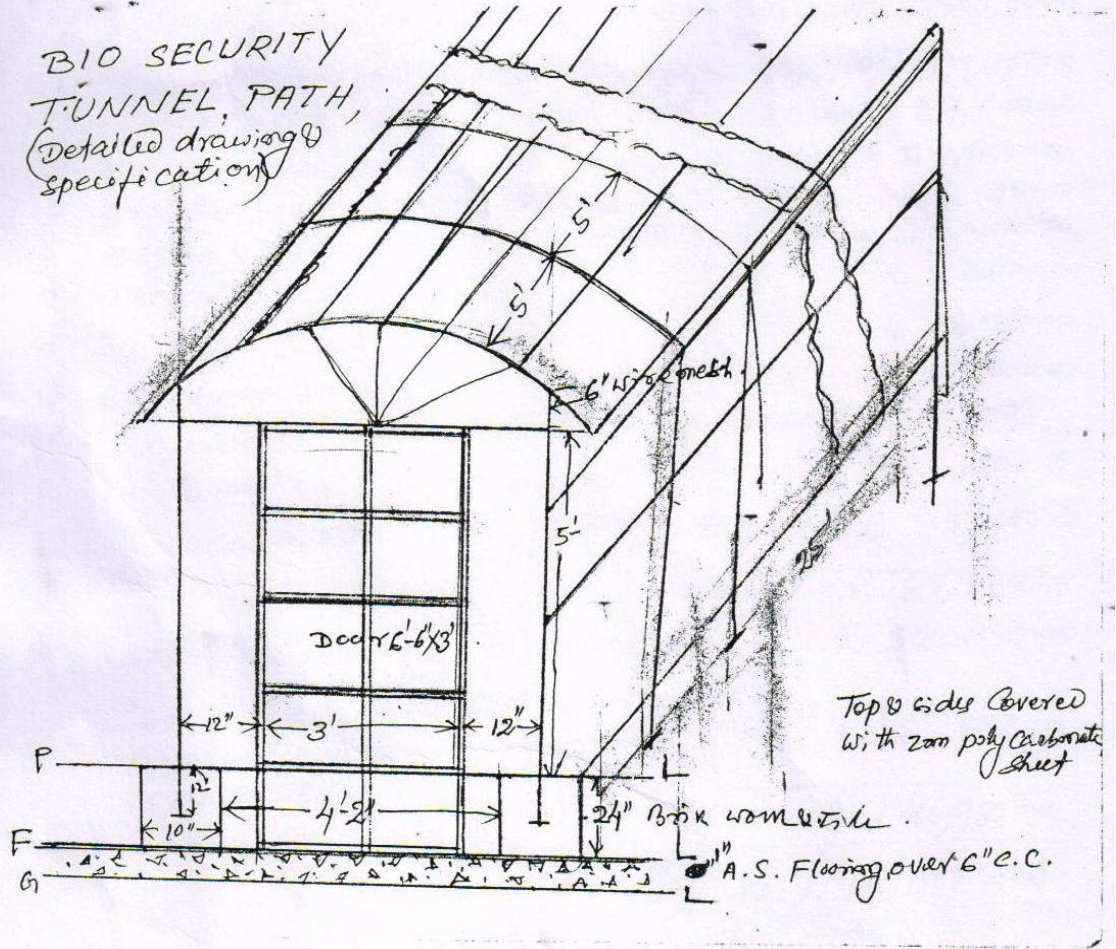 BIO SECURITY
TUNNEL PATH
(Detailed drawing &
specification)
5'
5'
6" wire mesh.
5'
25'
Door 6'-6"X3'
12"
3'
12"
Top & sides Covered
with 2mm poly Carbonate
Sheet
P
12"
4'-2"
10"
24" Brick work
F
1" A.S. Flooring over 6" C.C.
G